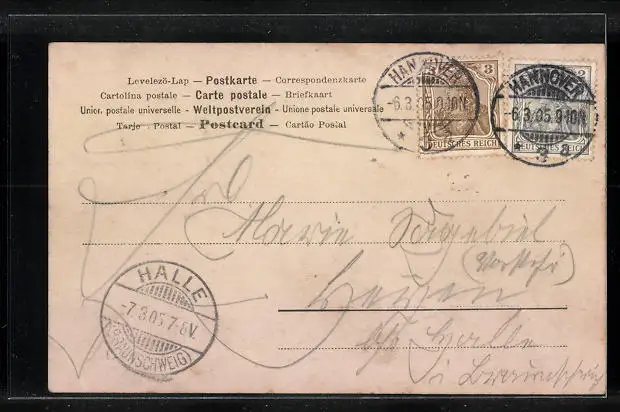 Levelezö-Lap — Postkarte — Correspondenzkarte
Cartolina postale — Carte postale — Briefkaart
Unior. postale universelle - Weltpostverein - Unione postale universale
Tarje Postal — Postcard — Cartão Postal
HANNOVER
-6.3.05.9-10N.
3
DEUTSCHES REICH
HANNOVER
-6.3.05.9-10N.
* 3 a
2
DEUTSCHES REICH
Marie Sagebiel
HALLE
-7.3.05.7-8V.
(BRAUNSCHWEIG)
b/ Halle
i Braunschweig